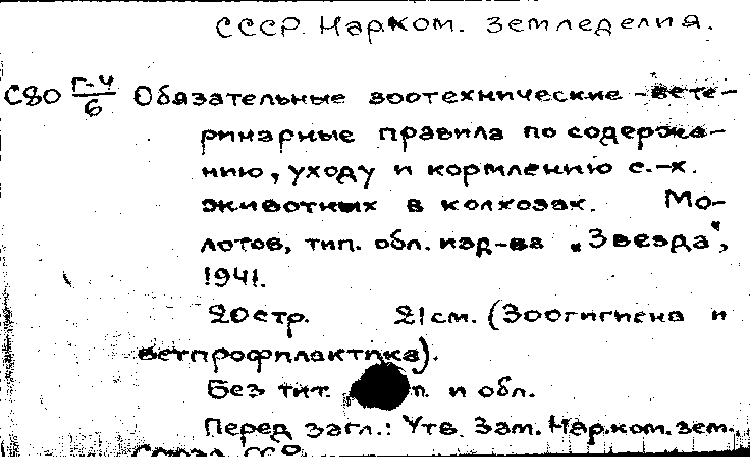 СССР. Нарком. Земледелия.
С80 Г-4/6 Обязательные зоотехнические-вете-
ринарные правила по содержа-
нию, уходу и кормлению с.-х.
животных в колхозах. Мо-
лотов, тип. обл. изд-ва „Звезда",
1941.
20 стр. 21 см. (Зоогигиена и
ветпрофилактика).
Без тит. л. и обл.
Перед загл.: Утв. Зам. Нар.ком. зем.